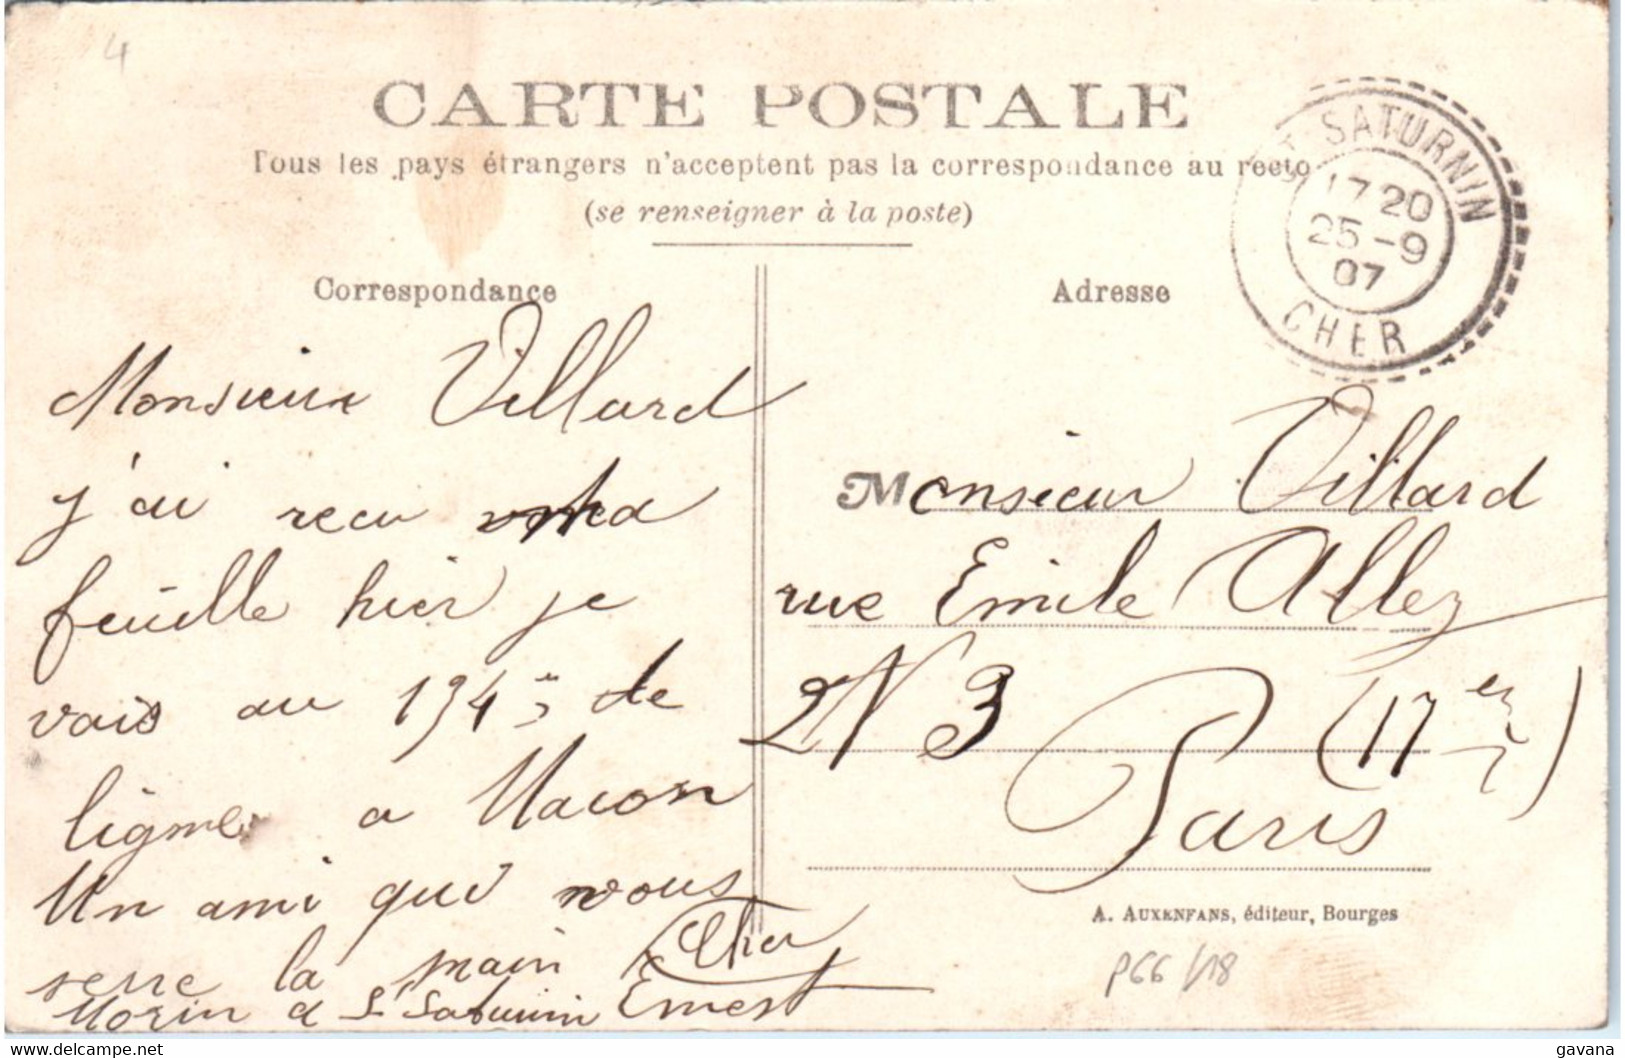 4
CARTE POSTALE
Tous les pays étrangers n'acceptent pas la correspondance au recto
(se renseigner à la poste)
ST SATURNIN
17 20
25-9
07
CHER
Correspondance
Monsieur Villard
j'ai recu ma
feuille hier je
vais au 134 de
ligne a Macon
Un ami qui vous
serre la main
Morin a St Saturnin
Cher
Ernest
Adresse
Monsieur Villard
rue Emile Allez
N 3 (17e)
Paris
A. AUXENFANS, éditeur, Bourges
P66/18
www.delcampe.net
gavana